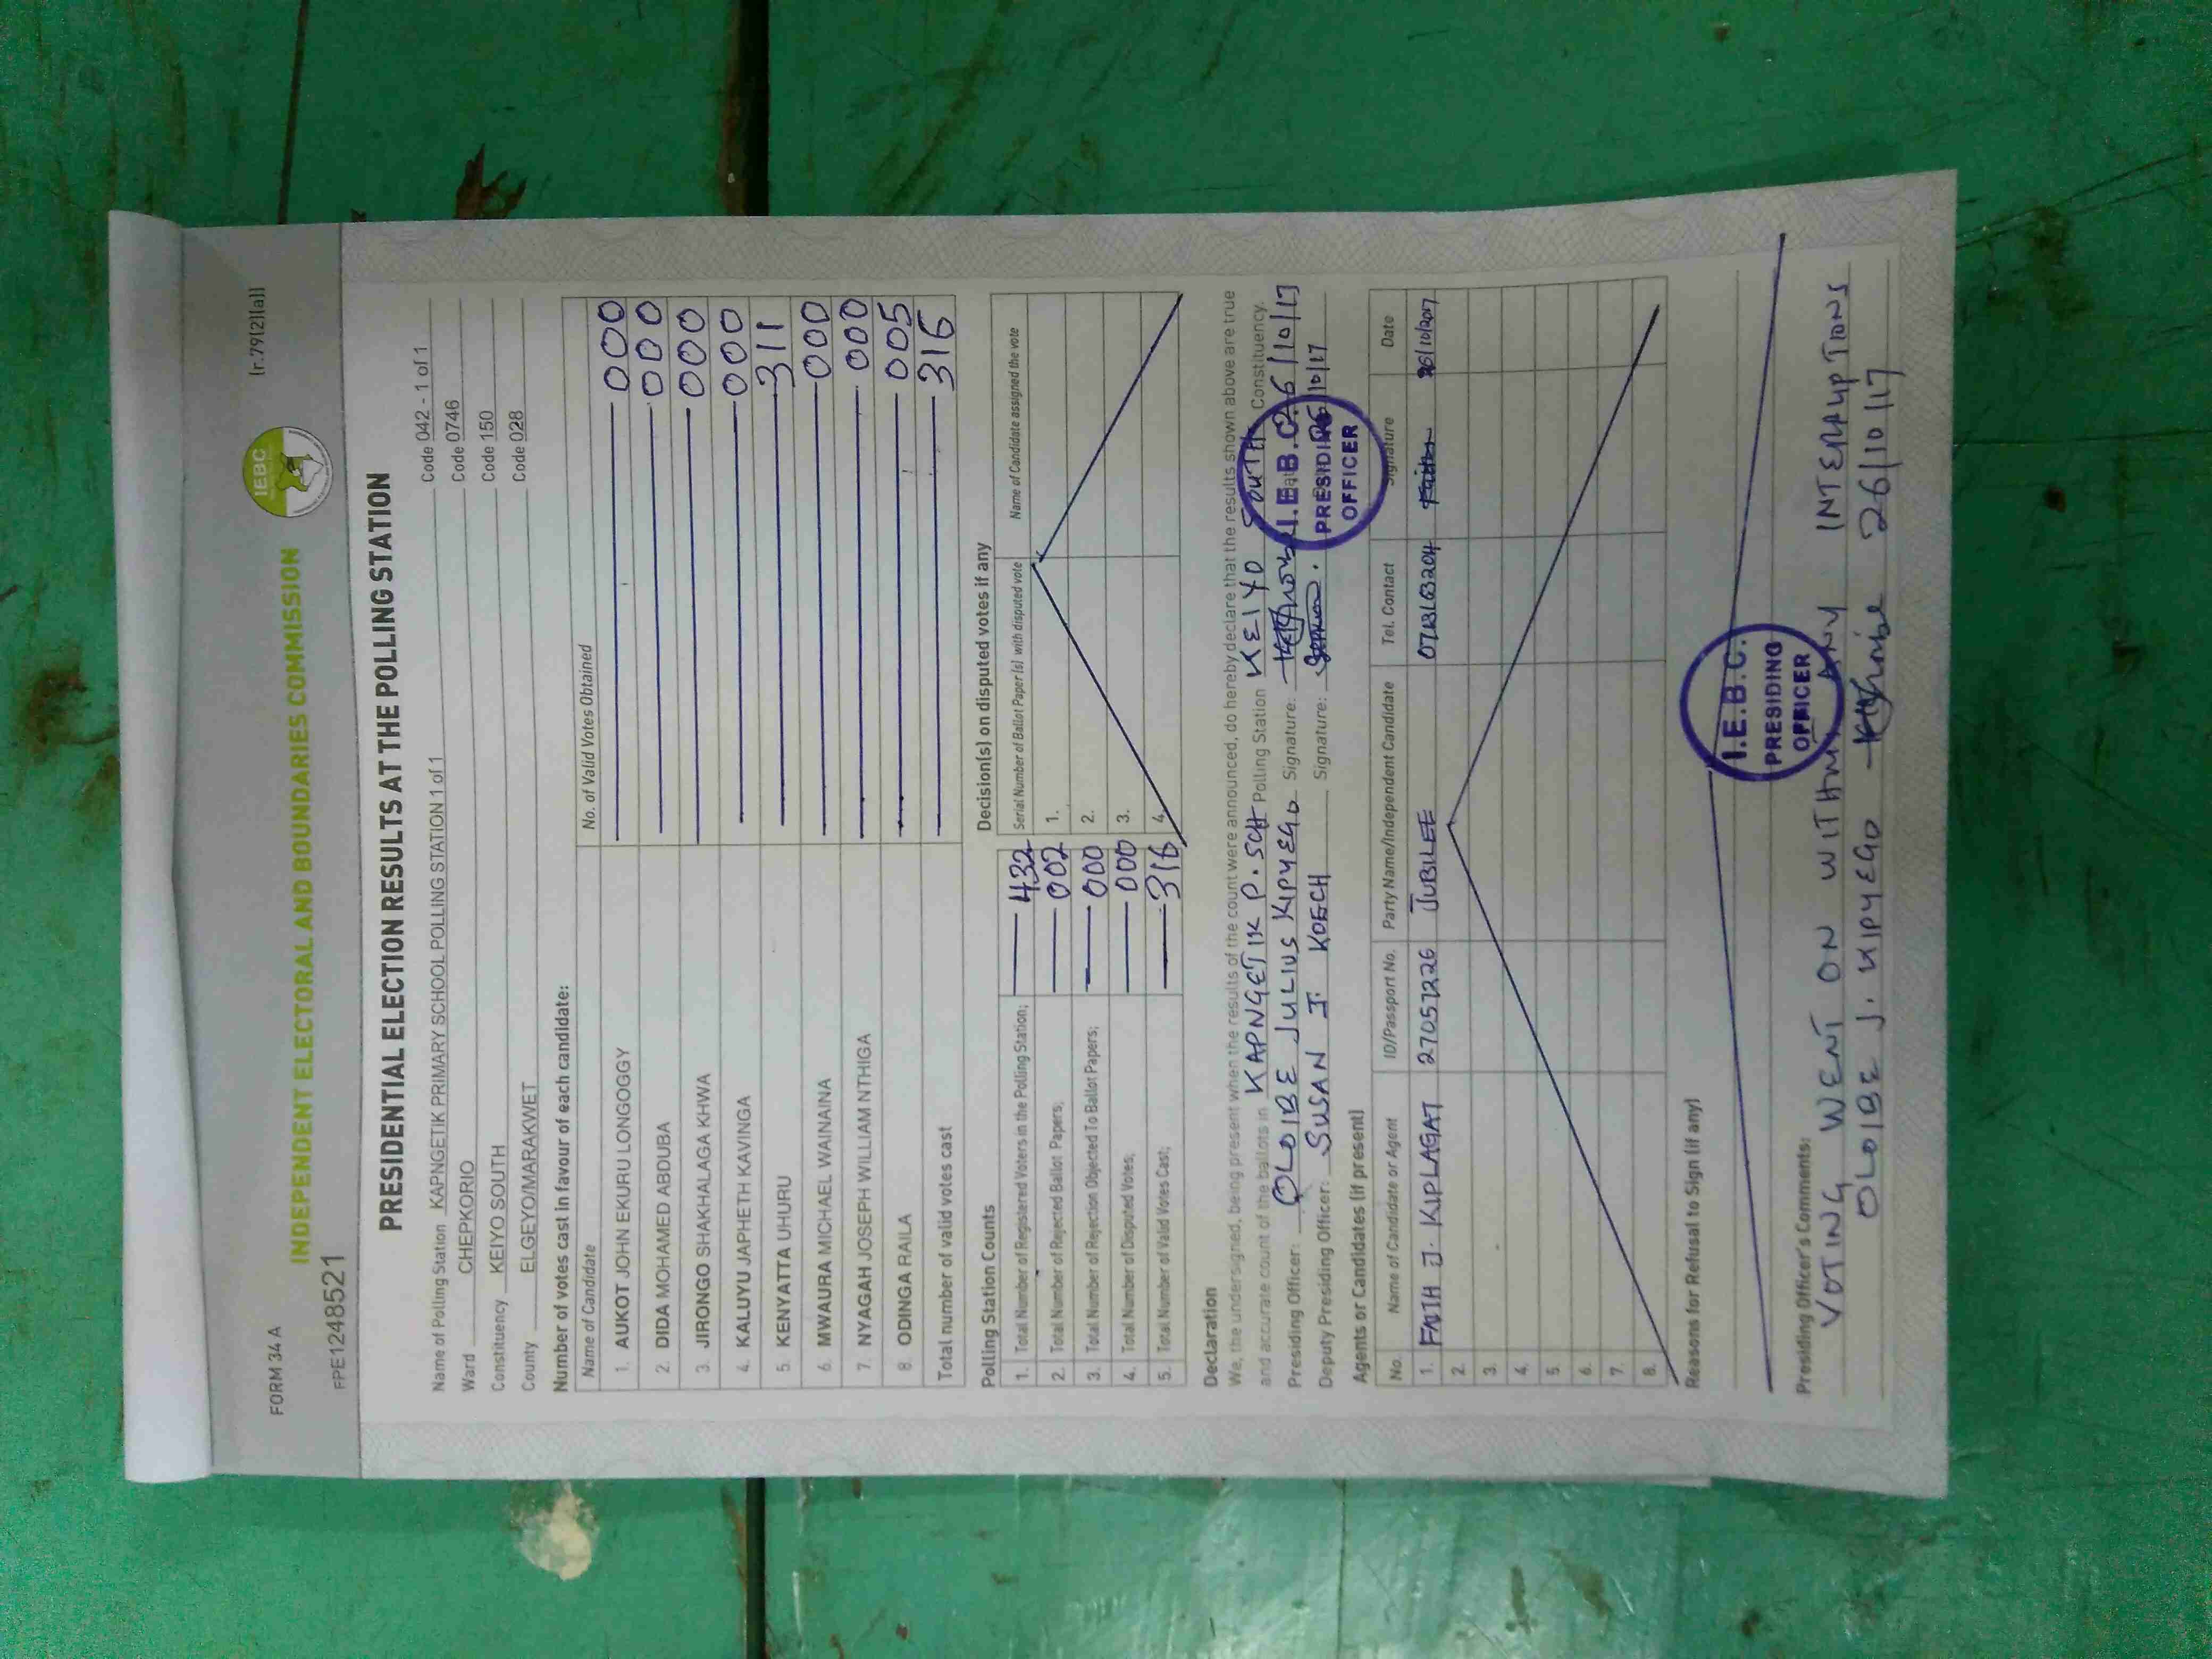 FORM 34 A
(r.79(2)(a))
IEBC
INDEPENDENT ELECTORAL AND BOUNDARIES COMMISSION
FPE1248521
PRESIDENTIAL ELECTION RESULTS AT THE POLLING STATION
Name of Polling Station KAPNGETIK PRIMARY SCHOOL POLLING STATION 1 of 1 Code 042 - 1 of 1
Ward CHEPKORIO Code 0746
Constituency KEIYO SOUTH Code 150
County ELGEYO/MARAKWET Code 028
Number of votes cast in favour of each candidate:
Name of Candidate No. of Valid Votes Obtained
1. AUKOT JOHN EKURU LONGOGGY 000
2. DIDA MOHAMED ABDUBA 000
3. JIRONGO SHAKHALAGA KHWA 000
4. KALUYU JAPHETH KAVINGA 000
5. KENYATTA UHURU 311
6. MWAURA MICHAEL WAINAINA 000
7. NYAGAH JOSEPH WILLIAM NTHIGA 000
8. ODINGA RAILA 005
Total number of valid votes cast 316
Polling Station Counts
1. Total Number of Registered Voters in the Polling Station; 432
2. Total Number of Rejected Ballot Papers; 002
3. Total Number of Rejection Objected To Ballot Papers; 000
4. Total Number of Disputed Votes; 000
5. Total Number of Valid Votes Cast; 316
Decision(s) on disputed votes if any
Serial Number of Ballot Paper (s) with disputed vote Name of Candidate assigned the vote
1.
2.
3.
4.
Declaration
We, the undersigned, being present when the results of the count were announced, do hereby declare that the results shown above are true
and accurate count of the ballots in KAPNGETIK P. SCH Polling Station KEIYO SOUTH Constituency.
Presiding Officer: OLOIBE JULIUS KIPYEGO Signature: 26/10/17
Deputy Presiding Officer: SUSAN J. KOECH Signature: 26/10/17
I.E.B.C.
PRESIDING
OFFICER
Agents or Candidates (if present)
No. Name of Candidate or Agent ID/Passport No. Party Name/Independent Candidate Tel. Contact Signature Date
1. FAITH J. KIPLAGAT 27057226 JUBILEE Faith 26/10/2017
2.
3.
4.
5.
6.
7.
8.
Reasons for Refusal to Sign (if any)
I.E.B.C.
PRESIDING
OFFICER
Presiding Officer's Comments:
VOTING WENT ON WITHOUT ANY INTERRUPTIONS
OLOIBE J. KIPYEGO 26/10/17